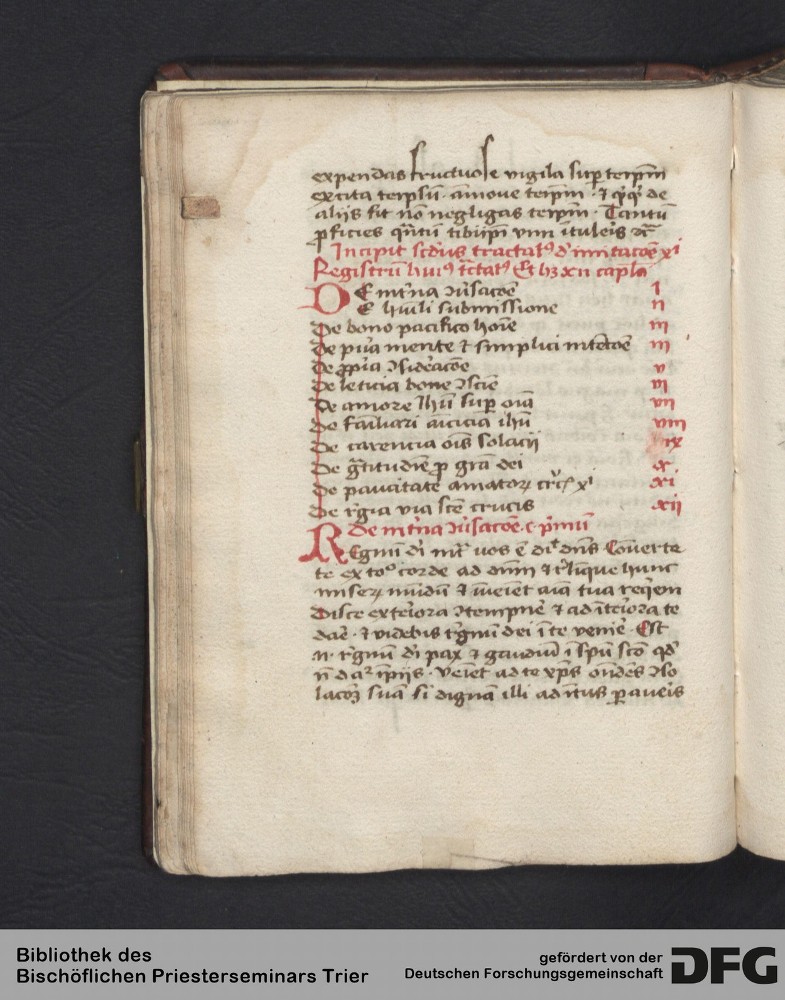 expendas fructuose vigila sup teipm̄
excita teipsū · amove teipm̄ · ⁊ qͥcqͥd de
aliis fit nō negligas teipm̄ · Tantū
ꝓficies qntū tibiipi vim ītuleris ⁊c̄
Incipit scd̄us tractatꝰ d' imitacōe xͥ
Registrū huiꝰ tctatꝰ Et hꝫ xii capla
DE int'na ꝯv'sacōe I
E hūili submissione ii
De bono pacifico hoīe iii
De pura mente ⁊ simplici intētōe iiii
De ꝓpria ꝯsid'acōe v
De leticia bone ꝯsciē vi
De amore Ihū sup oīa vii
De familiari amicicia ihū viii
De carencia oīs solacii ix
De gͣtitudīe ꝓ grā dei x
De paucitate amatoꝝ crucꝭ xͥ xi
De regia via scē crucis xii
De int'na ꝯv'sacōe · c · pͥmū
REgnū dī intͣ vos ē diͨ dn̄s Cōverte
te ex toͦ corde ad dnm̄ ⁊ relīque hunc
miseꝝ mūdū ⁊ īveīet aīa tua reqͥem
Disce exteriora ꝯtempnē ⁊ ad īteriora te
dare · ⁊ videbis regnū dei ī te venire · Est
.n. regnū dī pax ⁊ gaudiū ī spū scō qd'
n̄ daͬ īpiis · Veīet ad te xp̄s ondēs ꝯso
lacōꝫ suā si dignā illi ad ītus ꝑaveris
Bibliothek des
Bischöflichen Priesterseminars Trier
gefördert von der
Deutschen Forschungsgemeinschaft
DFG